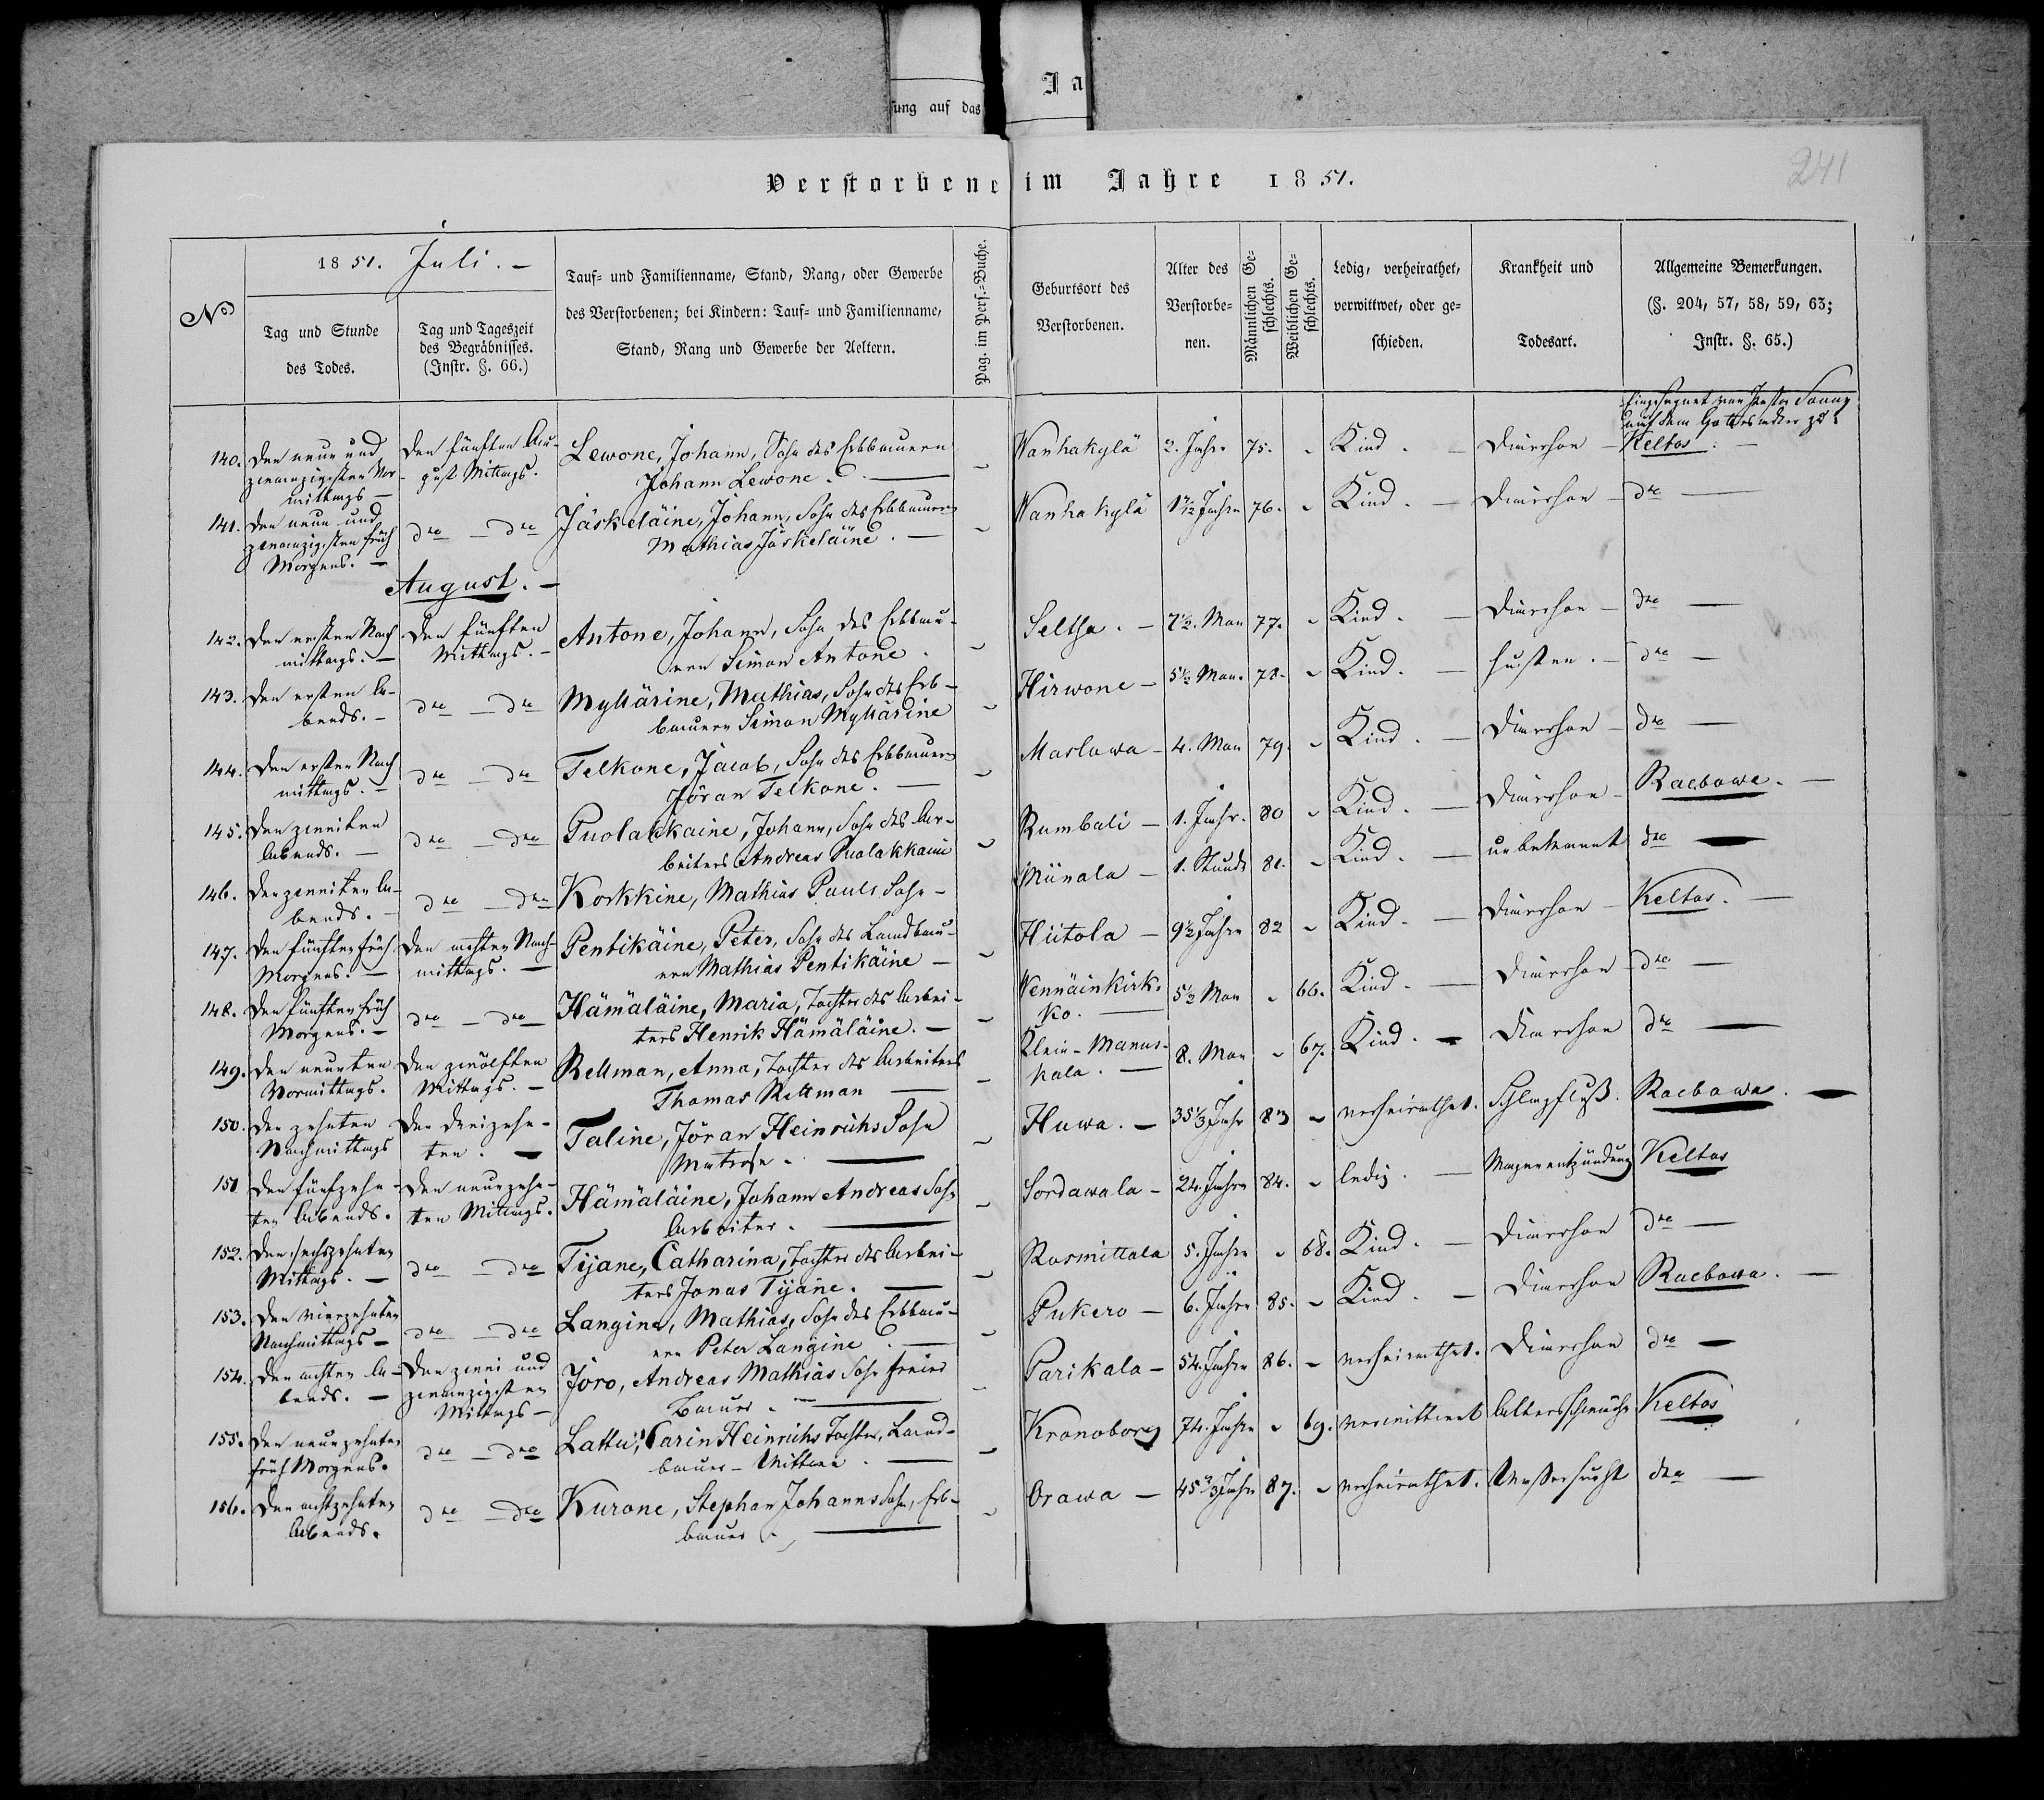 Ja
sung auf das
Verstorbene im Jahre 1851.
241
1851. Juli. –
No
Tag und Stunde
des Todes.
Tag und Tageszeit
des Begräbnisses.
(Instr. §. 66.)
Tauf- und Familienname, Stand, Rang, oder Gewerbe
des Verstorbenen; bei Kindern: Tauf- und Familienname,
Stand, Rang und Gewerbe der Aeltern.
Pag. im Pers.-Buche.
Geburtsort des
Verstorbenen.
Alter des
Verstorbe-
nen.
Männlichen Ge-
schlechts.
Weiblichen Ge-
schlechts.
Ledig, verheirathet,
verwittwet, oder ge-
schieden.
Krankheit und
Todesart.
Allgemeine Bemerkungen.
(§. 204, 57, 58, 59, 63;
Instr. §. 65.)
140. Den neun und
zwanzigsten Vor-
mittags –
Den fünften Au-
gust Mittags.
Lewone, Johann, Sohn des Erbbauern
Johann Lewone. –
Wanhakylä 2. Jahr 75. – Kind. – Diarrhoe –
Eingesegnet von Pastor
auf dem Gottesacker zu
Keltos. –
141. Den neun und
zwanzigsten früh
Morgens. –
dto – dto
Jäskeläine, Johann, Sohn des Erbbauern
Mathias Jäskeläine. –
Wanhakylä 1½ Jahr 76. – Kind. – Diarrhoe – dto –
August. –
142. Den ersten Nach
mittags. –
Den fünften
Mittags. –
Antone, Johann, Sohn des Erbbau-
ern Simon Antone.
Seltja. – 7½. Mon 77. – Kind. – Diarrhoe – dto –
143. Den ersten A-
bends. –
dto – dto
Myllärine, Mathias, Sohn des Erb-
bauern Simon Myllärine
Hirwone – 5½ Mon. 78. – Kind. – Husten. – dto –
144. Den ersten Nach
mittags. –
dto – dto
Telkone, Jacob, Sohn des Erbbauern
Jöran Telkone. –
Maslowa – 4. Mon 79. – Kind. – Diarrhoe – dto –
145. Den zweiten
Abends. –
dto – dto
Puolakkaine, Johann, Sohn des Ar-
beiters Andreas Puolakkaine
Rumbali – 1. Jahr. 80 – Kind. – Diarrhoe – Raebowa. –
146. Den zweiten A-
bends. –
dto – dto
Korkkine, Mathias Pauls Sohn –
Münala – 1. Stunde 81. – Kind. – unbekannt dto –
147. Den fünften früh
Morgens. –
Den achten Nach-
mittags. –
Pentikäine, Peter, Sohn des Landbau-
ern Mathias Pentikäine –
Hiitola – 9½ Jahre 82 – Kind. – Diarrhoe – Keltos. –
148. Den fünften früh
Morgens. –
dto – dto
Hämäläine, Maria, Tochter des Arbei-
ters Henrik Hämäläine. –
Wennäinkirk-
ko. –
5½ Mon – 66. Kind. – Diarrhoe – dto –
149. Den neunten
Vormittags.
Den zwölften
Mittags. –
Rellman, Anna, Tochter des Arbeiters
Thomas Rellman –
Klein-Manus-
kala. –
8. Mon – 67. Kind. – Diarrhoe dto –
150. Den zehnten
Nachmittags
Den dreizehn-
ten. –
Taline, Jöran Heinrichs Sohn
Matrose. –
Huwa. – 35⅓ Jahr 83 – verheirathet. Schlagfluß. Raebowa. –
151 Den fünfzehn-
ten Abends.
Den neunzehn-
ten Mittags.
Hämäläine, Johann Andreas Sohn
Arbeiter. –
Sordawala – 24. Jahre 84. – ledig. – Magenentzündung Keltos
152. Den sechszehnten
Mittags. –
dto – dto
Tijane, Catharina, Tochter des Arbei-
ters Jonas Tijane. –
Rosmittala 5. Jahre – 68. Kind. – Diarrhoe dto –
153. Den vierzehnten
Nachmittags –
dto – dto
Langine, Mathias, Sohn des Erbbau-
ern Peter Langine. –
Pukero – 6. Jahre 85. – Kind. – Diarrhoe Raebowa. –
154. Den achten A-
bends. –
Den zwei und
zwanzigsten
Mittags –
Joro, Andreas Mathias Sohn freier
Bauer. –
Parikala – 54. Jahre 86. – verheirathet. Diarrhoe dto –
155. Den neunzehnten
früh Morgens.
dto – dto
Lattu, Carin Heinrichs Tochter, Land-
bauer-Wittwe. –
Kronoborg 74. Jahre – 69. verwittwet Altersschwäche Keltos
156. Den achtzehnten
Abends.
dto – dto
Kurone, Stephan Johanns Sohn, Erb-
bauer. –
Orawa – 45⅔ Jahre 87. – verheirathet. Wassersucht dto –